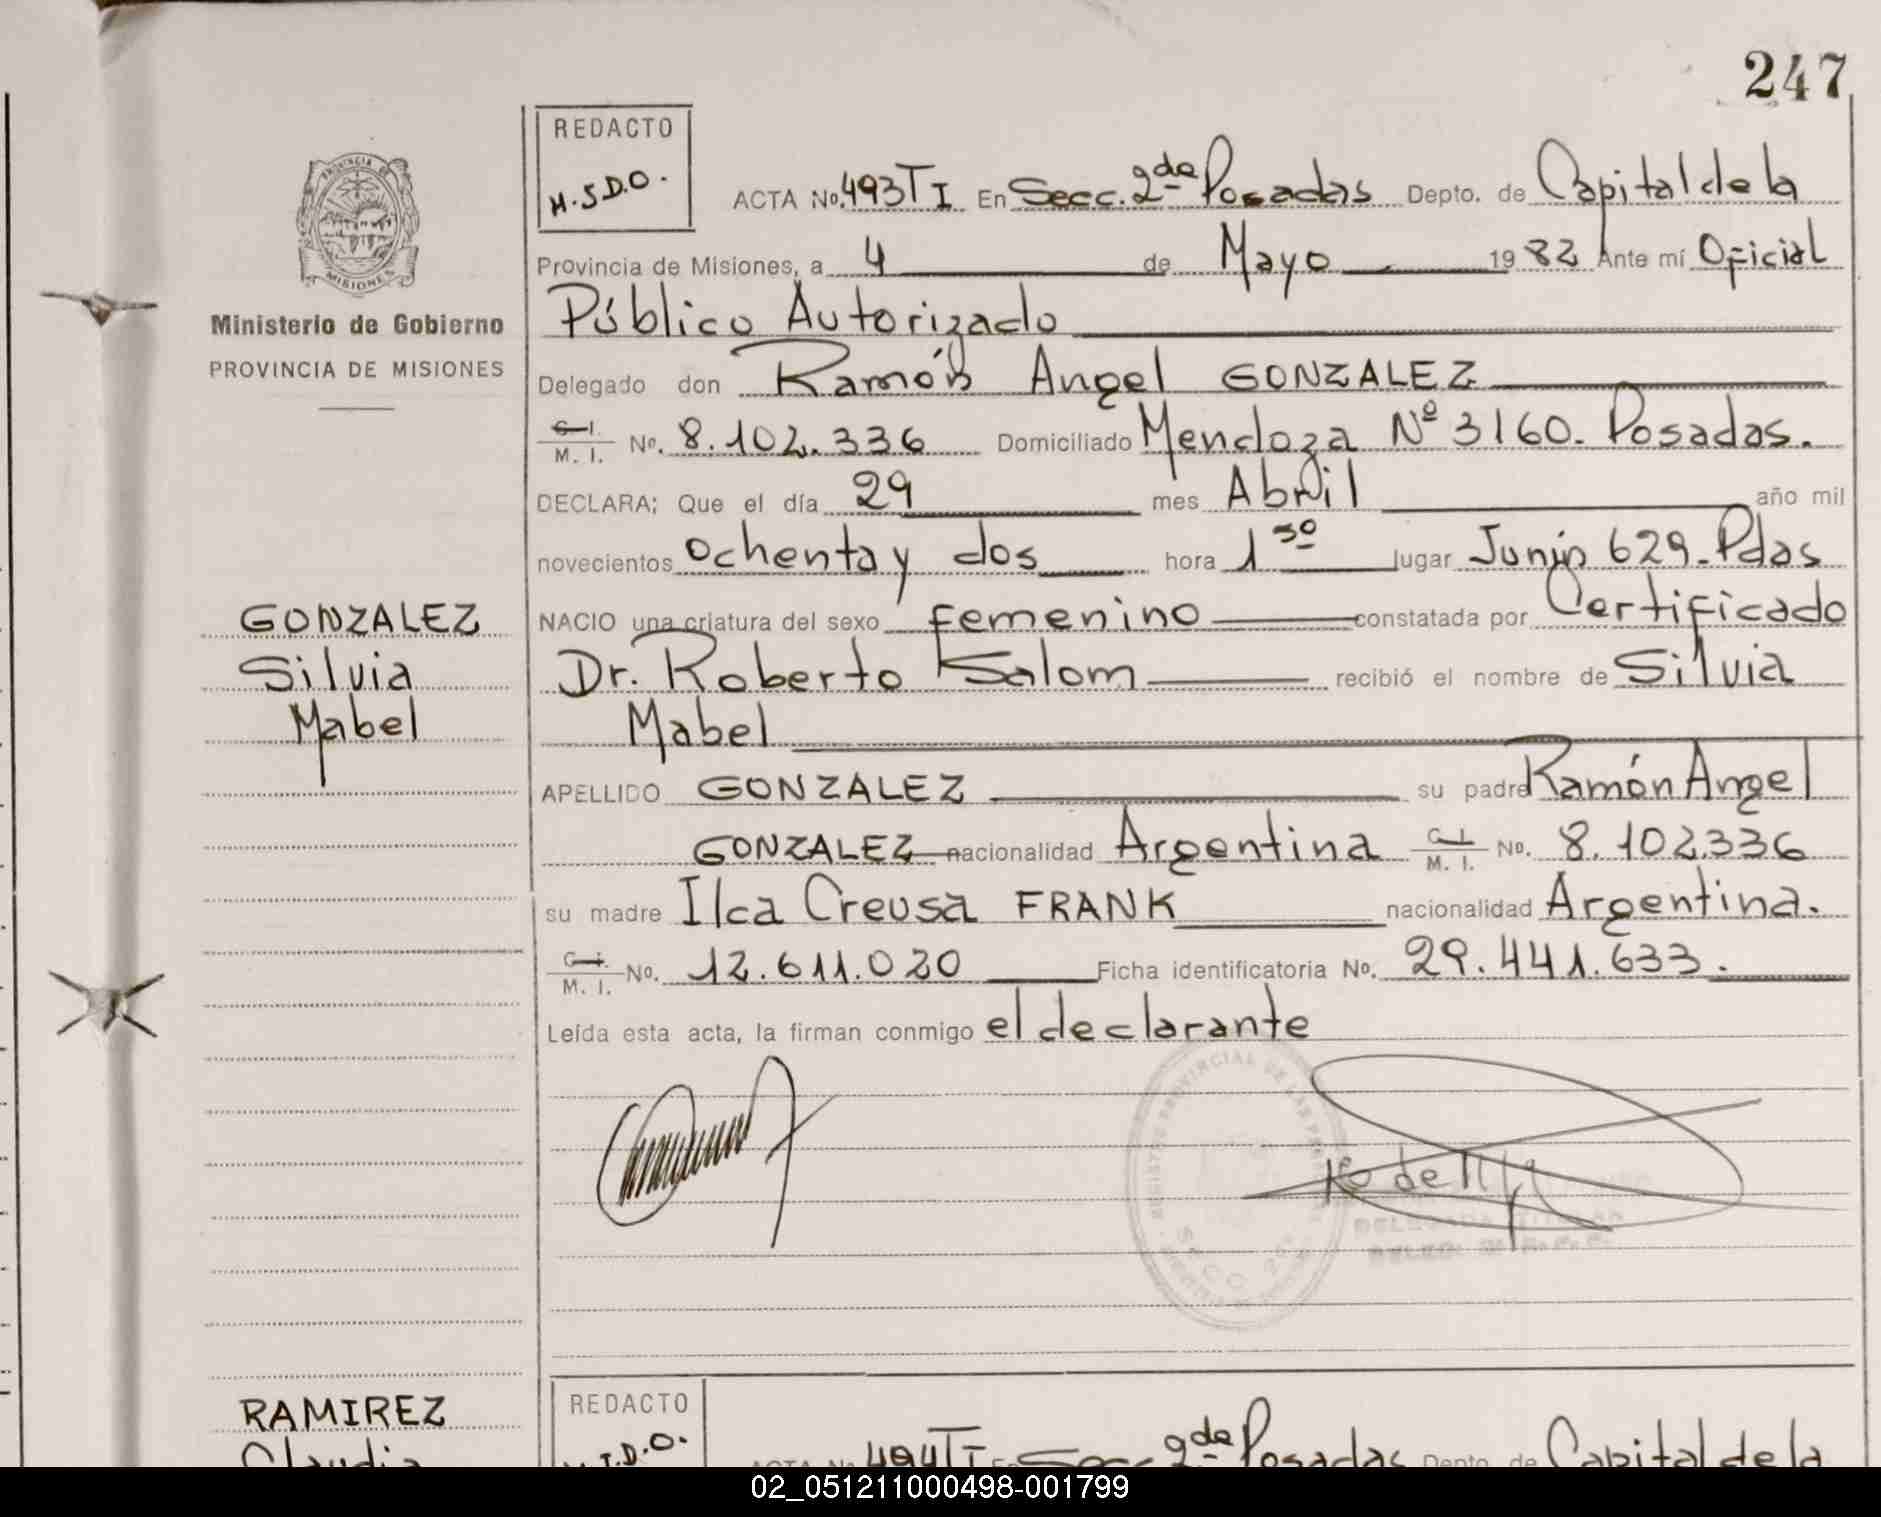 247
REDACTO
M.S.D.O.
ACTA No. 493 T I En Secc. 2da Posadas Depto. de Capital de la
Provincia de Misiones, a 4 de Mayo 1982 Ante mí Oficial
Público Autorizado
Delegado don Ramón Angel GONZALEZ
C. I. M. I. No. 8.102.336 Domiciliado Mendoza Nº 3160. Posadas.
DECLARA; Que el día 29 mes Abril año mil
novecientos ochenta y dos hora 1 30 lugar Junin 629. Pdas
NACIO una criatura del sexo femenino constatada por Certificado
Dr. Roberto Salom recibió el nombre de Silvia
Mabel
APELLIDO GONZALEZ su padre Ramón Angel
GONZALEZ nacionalidad Argentina C. I. M. I. No. 8.102.336
su madre Ilca Creusa FRANK nacionalidad Argentina.
C. I. M. I. No. 12.611.020 Ficha identificatoria No. 29.441.633.
Leída esta acta, la firman conmigo el declarante
PROVINCIA DE MISIONES
Ministerio de Gobierno
PROVINCIA DE MISIONES
GONZALEZ
Silvia
Mabel
REGISTRO PROVINCIAL DE LAS PERSONAS
SECC 2a
RAMIREZ
Claudia
REDACTO
ACTA No 494 T I En Secc 2da Posadas Depto. de Capital de la
02_051211000498-001799